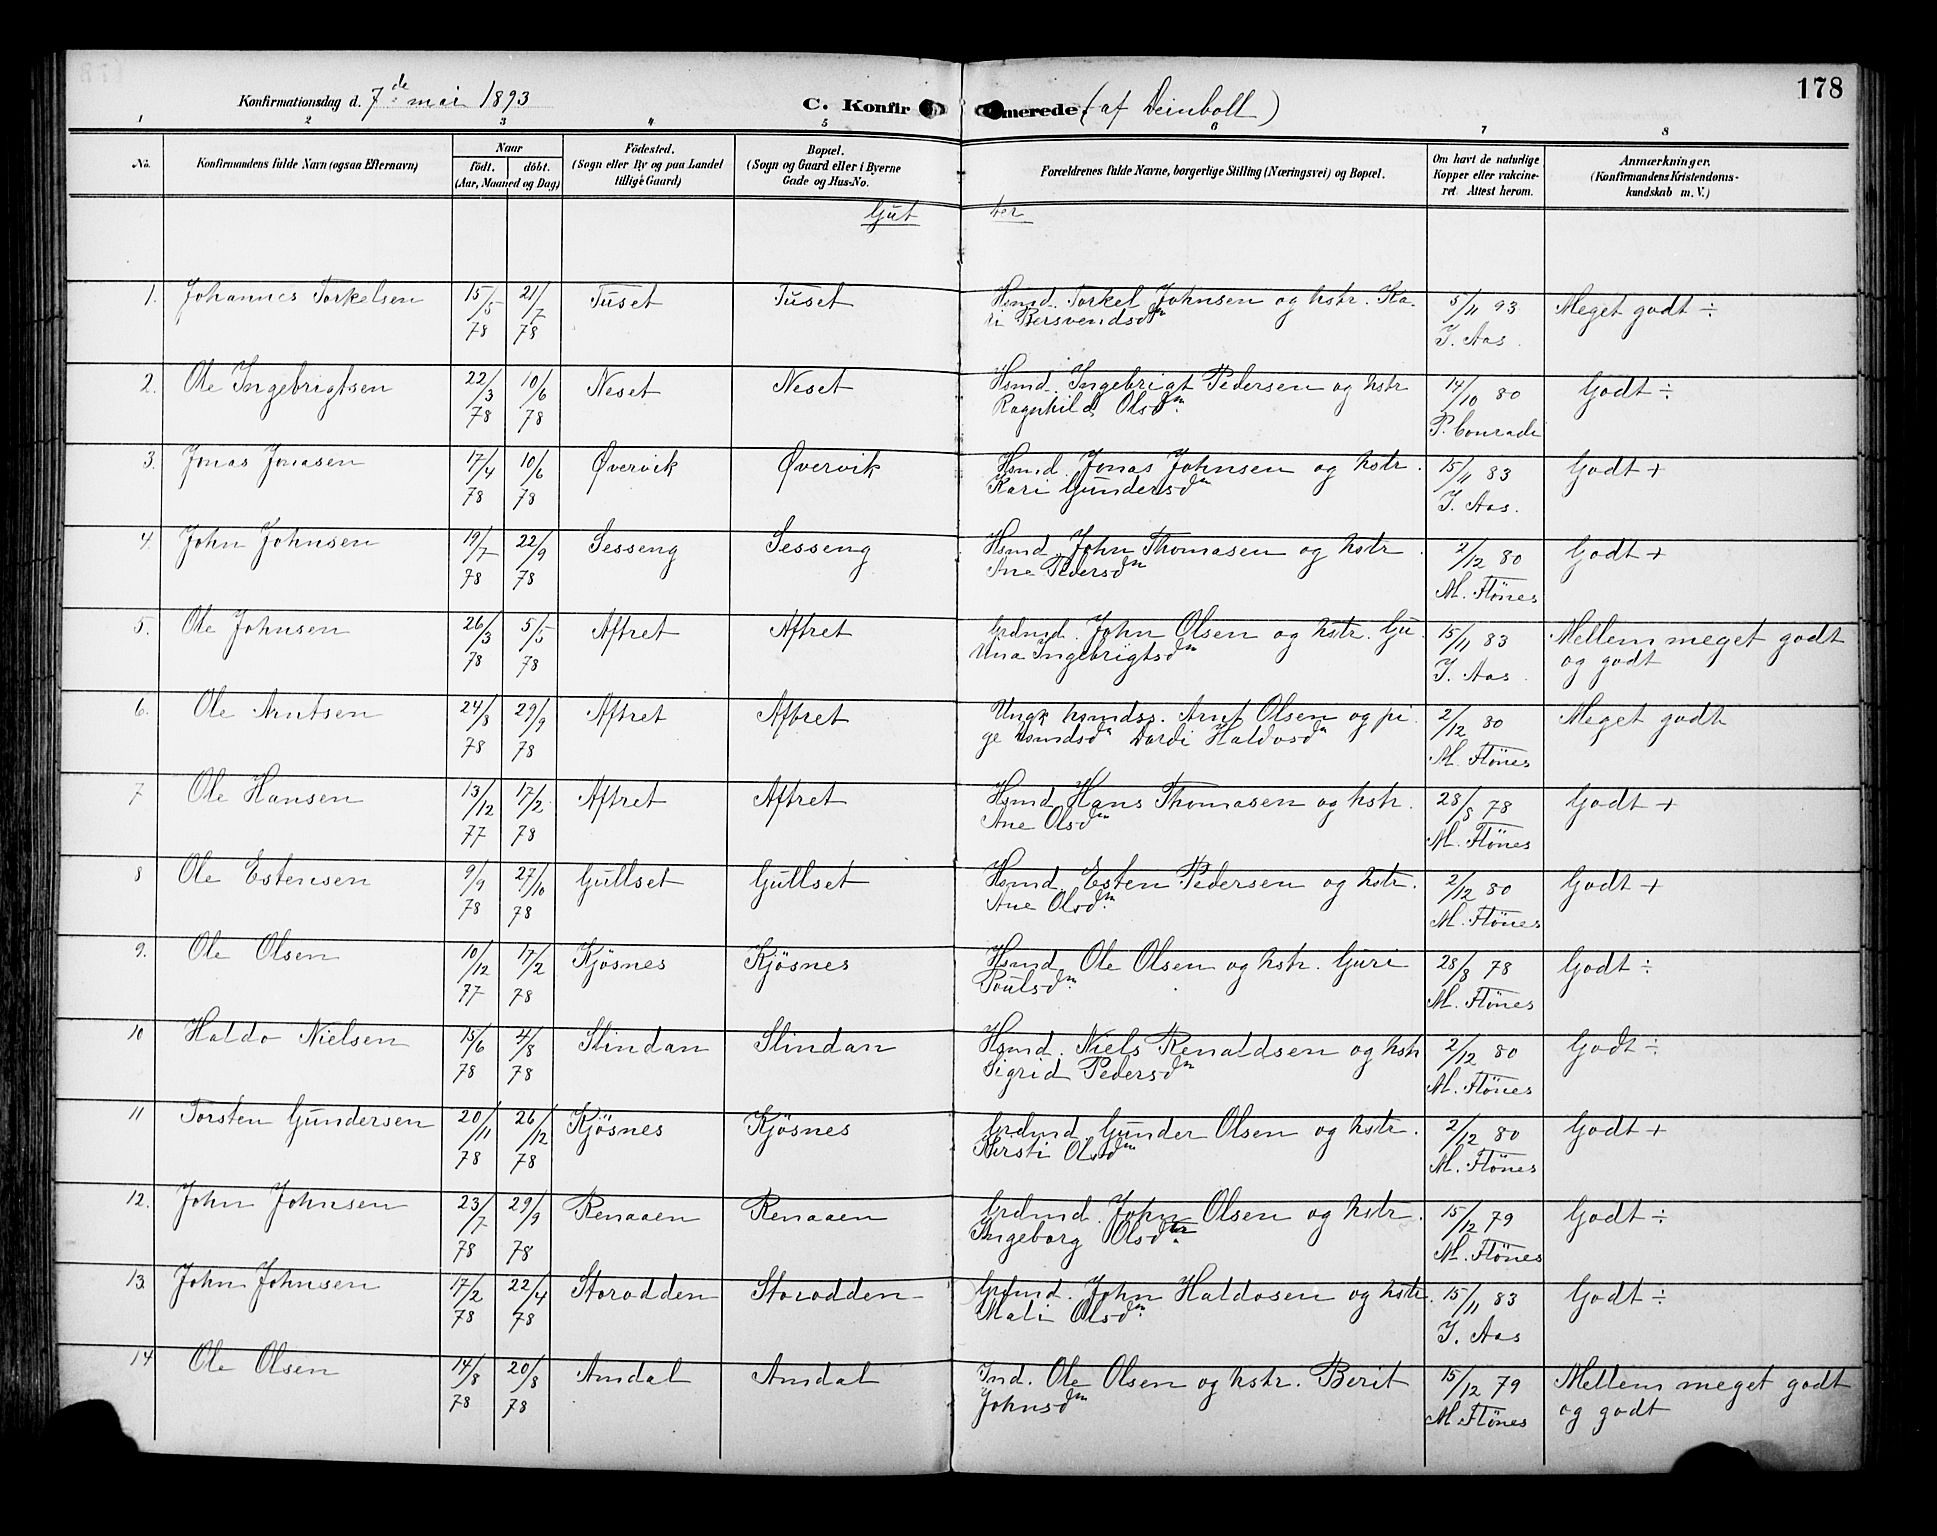 178
Konfirmationsdag d. 7de mai 1893 C. Konfirmerede (af Deinboll)
1 2 3 4 5 6 7 8
No. Konfirmandens fulde Navn (ogsaa Efternavn) Naar født. døbt. (Aar, Maaned og Dag) Fødested. (Sogn eller By og paa Landet tillige Gaard) Bopæl. (Sogn og Gaard eller i Byerne Gade og Hus-No. Forældrenes fulde Navne, borgerlige Stilling (Næringsvei) og Bopæl. Om havt de naturlige Kopper eller vakcineret. Attest herom. Anmærkninger. (Konfirmandens Kristendomskundskab m. V.)
Gutter
1. Johannes Torkelsen 15/5 78 21/7 78 Tuset Tuset Hsmd. Torkel Johnsen og hstr. Kari Bersvendsdn 5/11 93 J. Aas. Meget godt ÷
2. Ole Ingebrigtsen 22/3 78 10/6 78 Neset Neset Hsmd. Ingebrigt Pedersen og hstr Ragnhild Olsdn. 14/10 80 P. Conradi Godt ÷
3. Jonas Jonasen 17/4 78 10/6 78 Øvervik Øvervik Hsmd. Jonas Johnsen og hstr. Kari Gundersdn 15/11 83 J. Aas. Godt +
4. John Johnsen 19/7 78 22/9 78 Sesseng Sesseng Hsmd. John Thomasen og hstr. Ane Pedersdn 2/12 80 M. Flönes Godt +
5. Ole Johnsen 26/3 78 5/5 78 Aftret Aftret Grdmd. John Olsen og hstr. Gunna Ingebrigtsdn 15/11 83 J. Aas. Mellem meget godt og godt
6. Ole Arntsen 24/8 78 29/9 78 Aftret Aftret Ungk hsmdss. Arnt Olsen og pige hsmdsdn Dordi Haldosdn 2/12 80 M. Flönes Meget godt
7 Ole Hansen 13/12 77 17/2 78 Aftret Aftret Hsmd. Hans Thomasen og hstr. Ane Olsdn 28/8 78 M. Flönes Godt +
8 Ole Estensen 9/9 78 27/10 78 Gullset Gullset Hsmd. Esten Pedersen og hstr. Ane Olsdn. 2/12 80 M. Flönes Godt +
9. Ole Olsen 10/12 77 17/2 78 Kjösnes Kjösnes Hsmd. Ole Olsen og hstr. Guri Poulsdn. 28/8 78 M. Flönes Godt ÷
10 Haldo Nielsen 15/6 78 4/8 78 Slindan Slindan Hsmd. Niels Renaldsen og hstr Sigrid Pedersdn 2/12 80 M. Flönes Godt ÷
11 Torsten Gundersen 20/11 78 26/12 78 Kjösnes Kjösnes Grdmd. Gunder Olsen og hstr. Kirsti Olsdn 2/12 80 M. Flönes Godt +
12. John Johnsen 23/7 78 29/9 78 Renaaen Renaaen Grdmd. John Olsen og hstr. Ingeborg Olsdtr. 15/12 79 M. Flönes Godt ÷
13. John Johnsen 17/2 78 22/4 78 Storodden Storodden Grdmd. John Haldosen og hstr. Mali Olsdn. 15/11 83 J. Aas Godt ÷
14 Ole Olsen 14/8 78 20/8 78 Amdal Amdal Ind. Ole Olsen og hstr. Berit Johnsdn 15/12 79 M. Flönes Mellem meget godt og godt